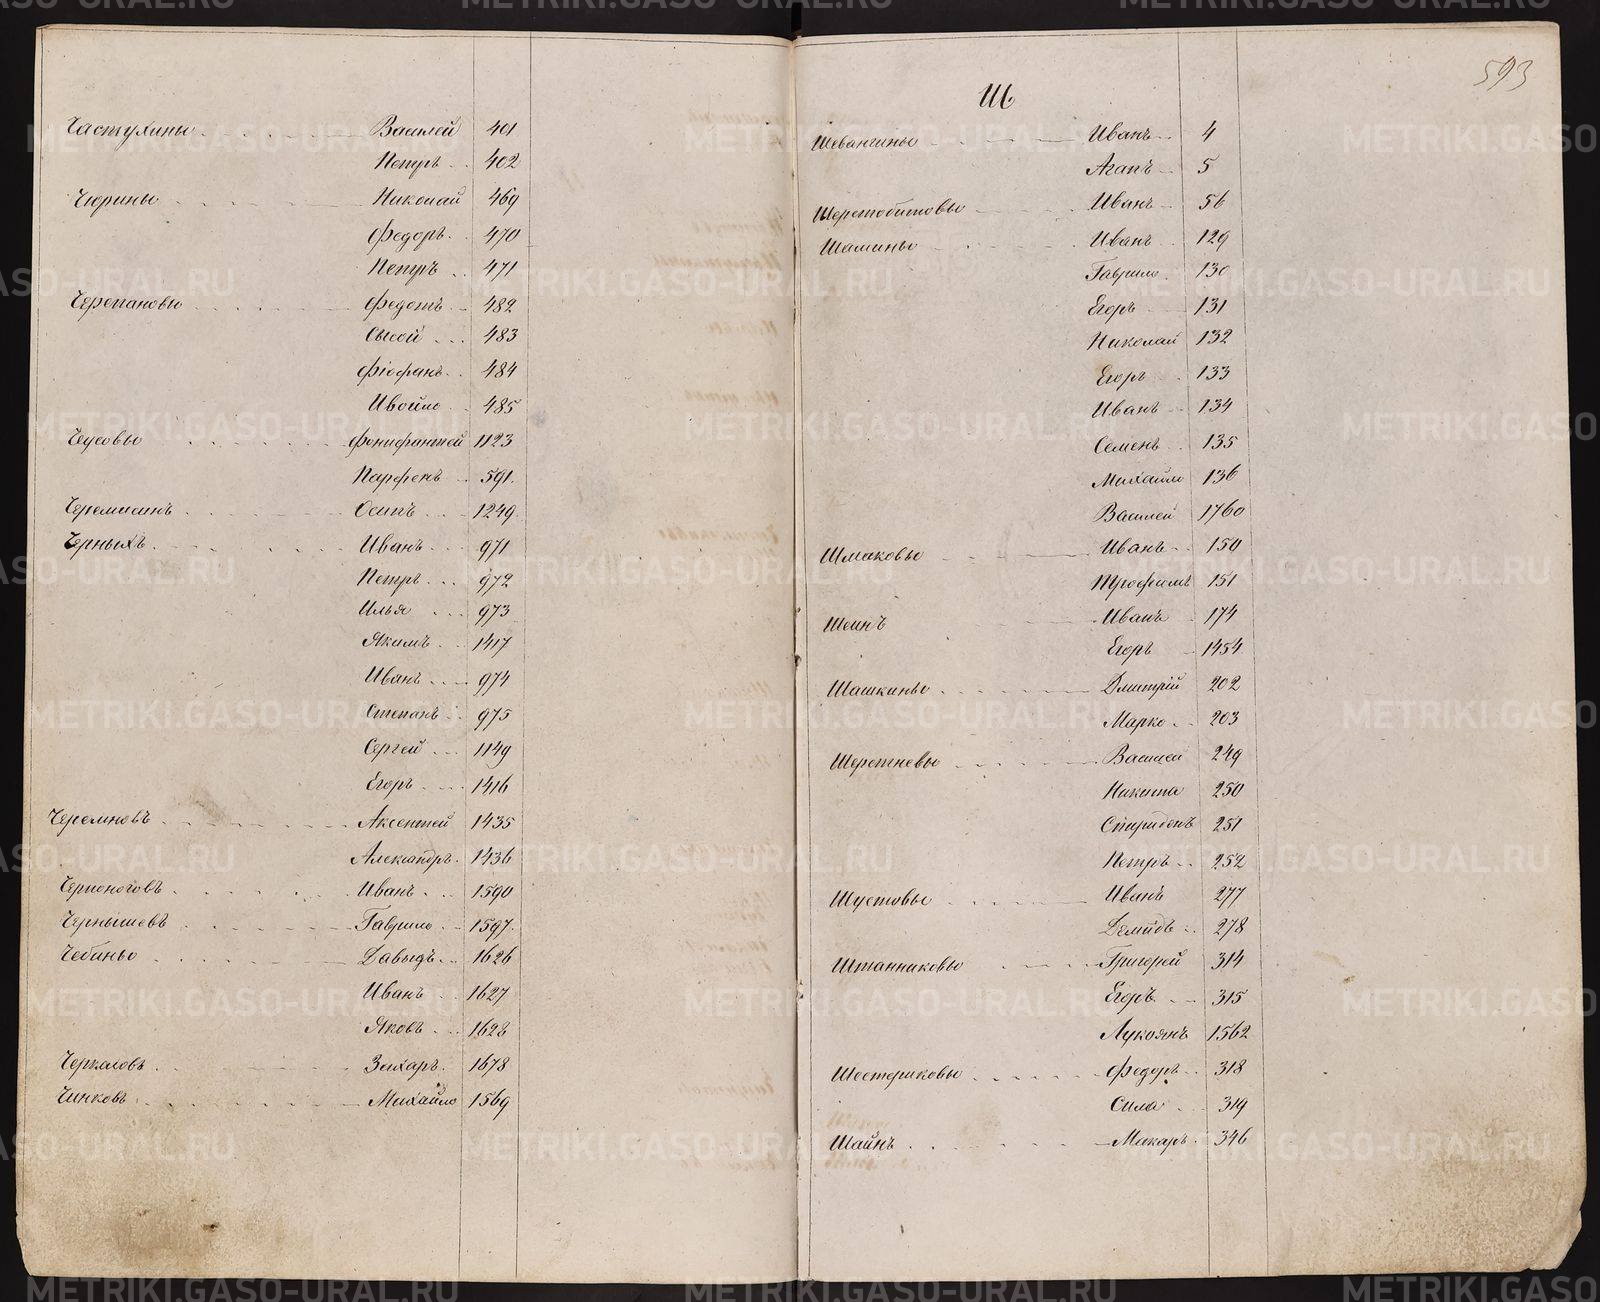 Частухины Василей 401
Петръ 402
Чюрины Николай 469
Федоръ 470
Петръ 471
Черепановы Федотъ 482
Сысой 483
Фіофанъ 484
Ивойло 485
Чусовы Фенифантей 1123
Парфенъ 591.
Черемисинъ Осипъ 1249
Черныхъ Иванъ 971
Петръ 972
Илья 973
Якимъ 1417
Иванъ 974
Степанъ 975
Сергей 1149
Егоръ 1416
Черемновъ Аксентей 1435
Александръ 1436
Черноноговъ Иванъ 1590
Чернышевъ Гаврило 1597.
Чебины Давыдъ 1626
Иванъ 1627
Яковъ 1628
Черкаловъ Захаръ 1678
Чинковъ Михайло 1569
593
Ш
Шевангины Иванъ 4
Агапъ 5
Шерстобитовы Иванъ 56
Шамины Иванъ 129
Гаврило 130
Егоръ 131
Николай 132
Егоръ 133
Иванъ 134
Семенъ 135
Михайло 136
Василей 1760
Шмаковы Иванъ 150
Трофимъ 151
Шеинъ Иванъ 174
Егоръ 1454
Шашкины Дмитрій 202
Марко 203
Шерстневы Василей 249
Никита 250
Спиридонъ 251
Петръ 252
Шустовы Иванъ 277
Демидъ 278
Штанниковы Григорей 314
Егоръ 315
Лукоянъ 1562
Шестериковы Федоръ 318
Сила 319
Шаинъ Макаръ 346
METRIKI.GASO-URAL.RU